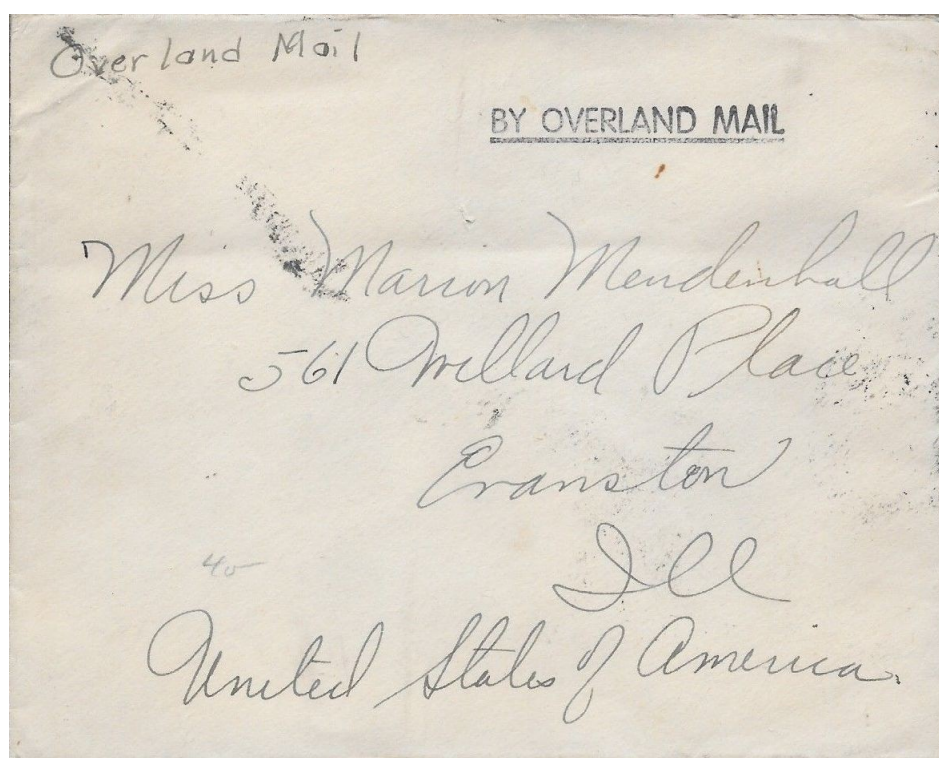 Overland Mail
BY OVERLAND MAIL
Miss Marion Mendenhall
561 Willard Place
Evanston
40
Ill
United States of America.